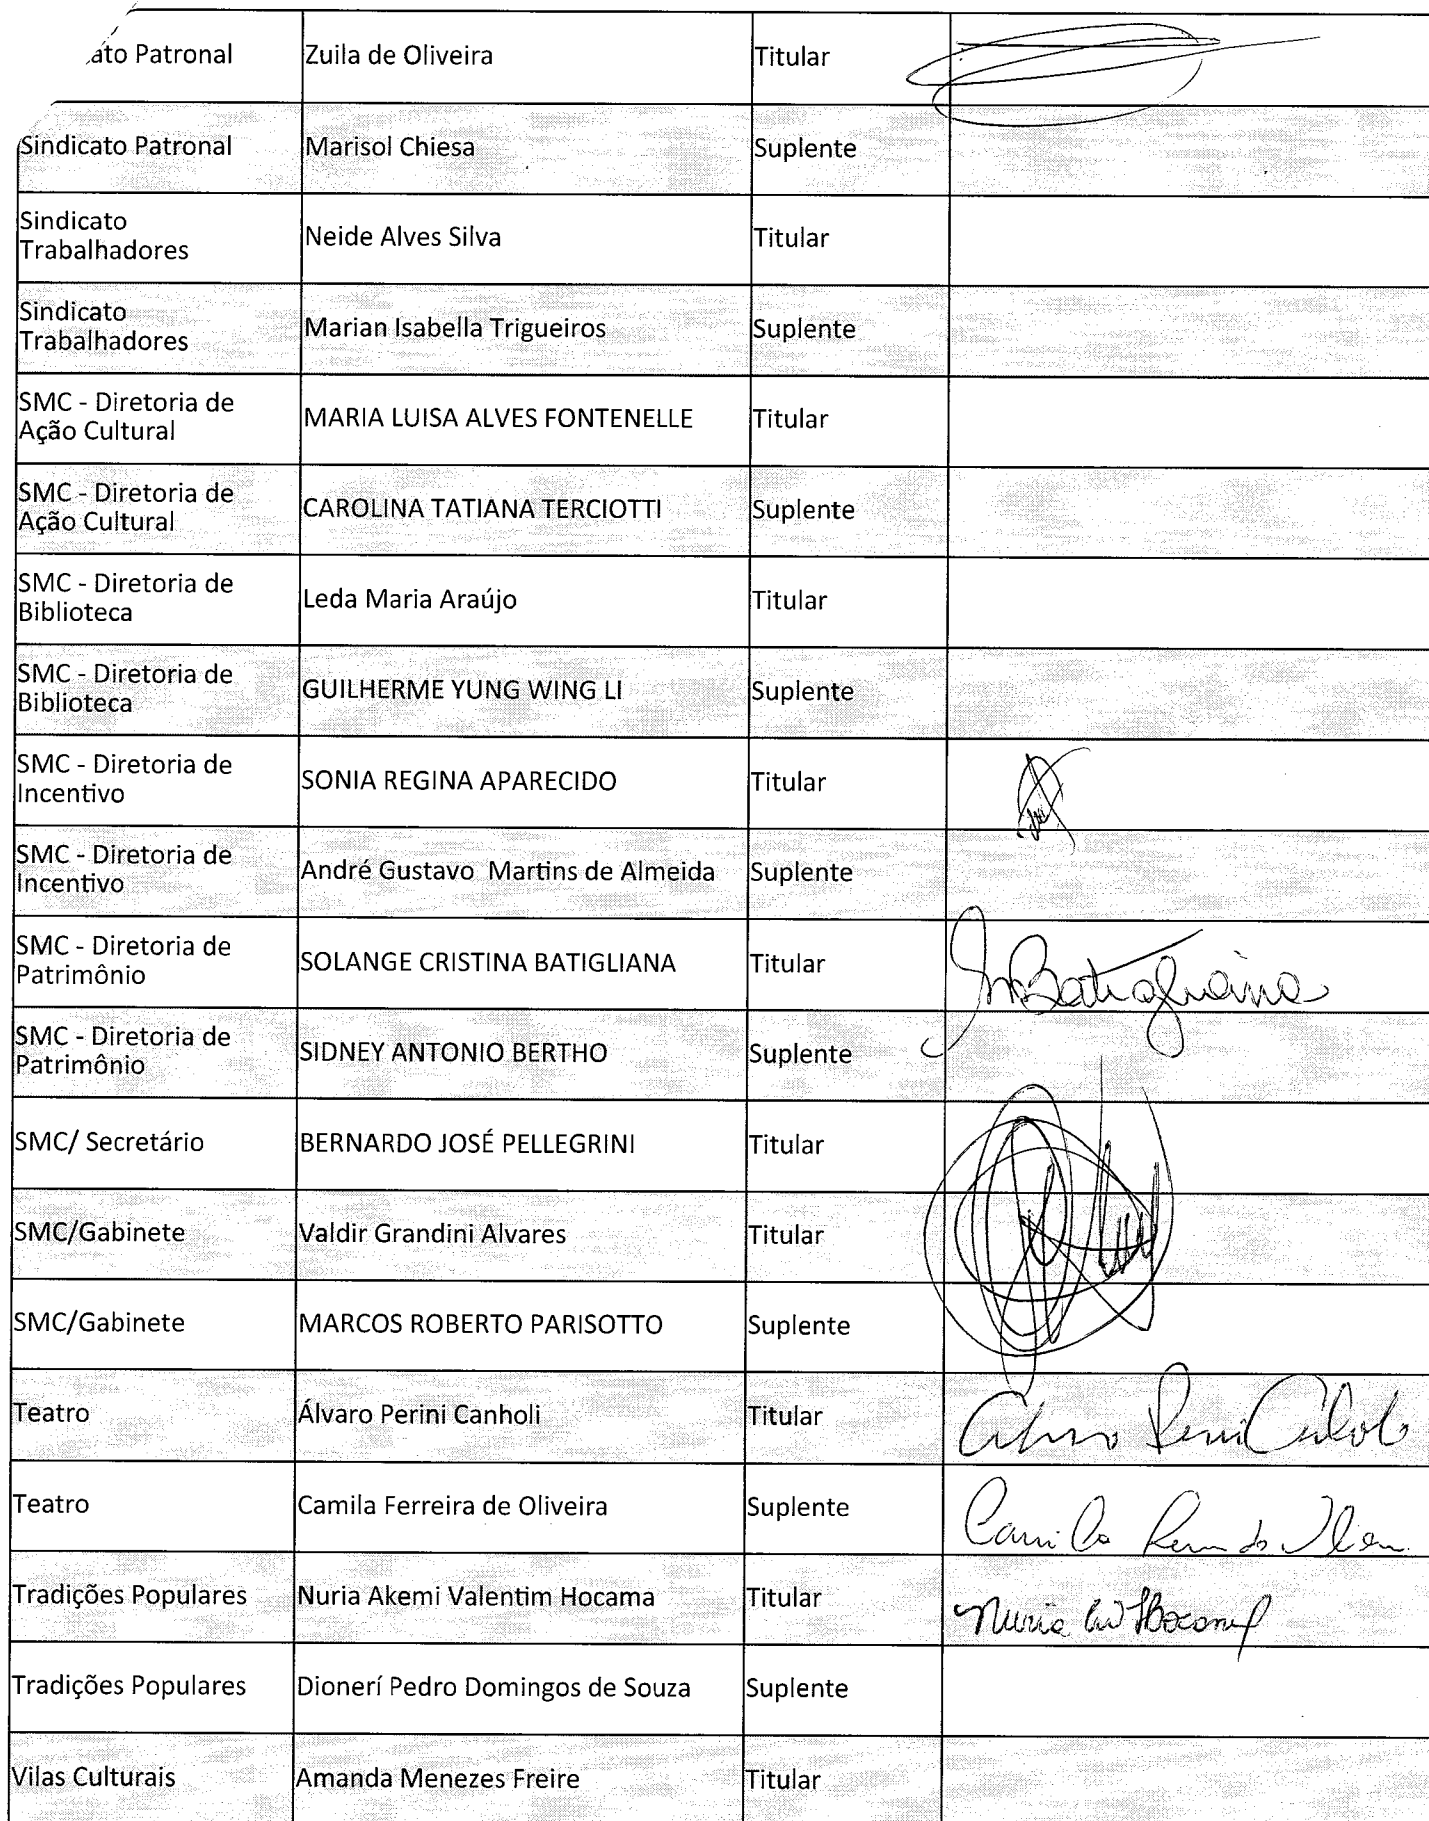 ato Patronal Zuila de Oliveira Titular
Sindicato Patronal Marisol Chiesa Suplente
Sindicato
Trabalhadores Neide Alves Silva Titular
Sindicato
Trabalhadores Marian Isabella Trigueiros Suplente
SMC - Diretoria de
Ação Cultural MARIA LUISA ALVES FONTENELLE Titular
SMC - Diretoria de
Ação Cultural CAROLINA TATIANA TERCIOTTI Suplente
SMC - Diretoria de
Biblioteca Leda Maria Araújo Titular
SMC - Diretoria de
Biblioteca GUILHERME YUNG WING LI Suplente
SMC - Diretoria de
Incentivo SONIA REGINA APARECIDO Titular
SMC - Diretoria de
Incentivo André Gustavo Martins de Almeida Suplente
SMC - Diretoria de
Patrimônio SOLANGE CRISTINA BATIGLIANA Titular Batigliana
SMC - Diretoria de
Patrimônio SIDNEY ANTONIO BERTHO Suplente
SMC/ Secretário BERNARDO JOSÉ PELLEGRINI Titular
SMC/Gabinete Valdir Grandini Alvares Titular
SMC/Gabinete MARCOS ROBERTO PARISOTTO Suplente
Teatro Álvaro Perini Canholi Titular
Teatro Camila Ferreira de Oliveira Suplente Camila
Tradições Populares Nuria Akemi Valentim Hocama Titular Nuria
Tradições Populares Dionerí Pedro Domingos de Souza Suplente
Vilas Culturais Amanda Menezes Freire Titular